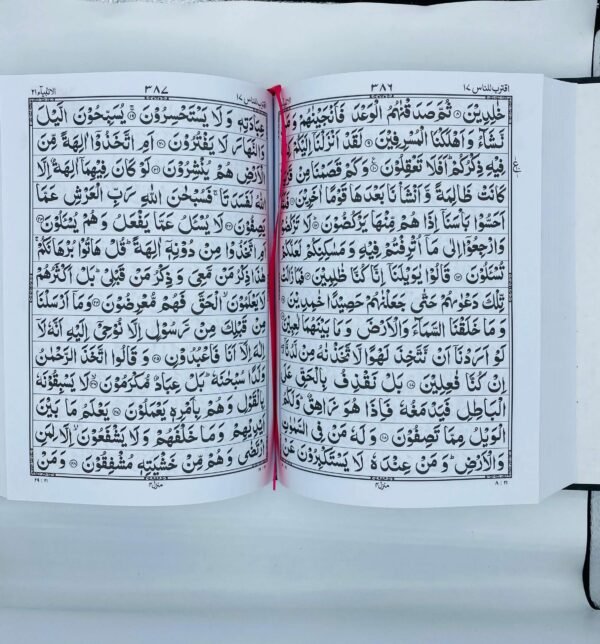 اقترب للناس ١٧ ٣٨٦
خٰلِدِيْنَ ۝٨ ثُمَّ صَدَقْنٰهُمُ الْوَعْدَ فَاَنْجَيْنٰهُمْ وَمَنْ
نَّشَآءُ وَاَهْلَكْنَا الْمُسْرِفِيْنَ ۝٩ لَقَدْ اَنْزَلْنَآ اِلَيْكُمْ
فِيْهِ ذِكْرُكُمْ ؕ اَفَلَا تَعْقِلُوْنَ ۝١٠ وَكَمْ قَصَمْنَا مِنْ
كَانَتْ ظَالِمَةً وَّاَنْشَاْنَا بَعْدَهَا قَوْمًا اٰخَرِيْنَ ۝١١
اَحَسُّوْا بَاْسَنَآ اِذَا هُمْ مِّنْهَا يَرْكُضُوْنَ ۝١٢ لَا تَرْكُضُوْا
وَارْجِعُوْٓا اِلٰى مَآ اُتْرِفْتُمْ فِيْهِ وَمَسٰكِنِكُمْ لَعَلَّكُمْ
تُسْـَٔلُوْنَ ۝١٣ قَالُوْا يٰوَيْلَنَآ اِنَّا كُنَّا ظٰلِمِيْنَ ۝١٤ فَمَا زَالَتْ
تِّلْكَ دَعْوٰىهُمْ حَتّٰى جَعَلْنٰهُمْ حَصِيْدًا خٰمِدِيْنَ ۝١٥
وَمَا خَلَقْنَا السَّمَآءَ وَالْاَرْضَ وَمَا بَيْنَهُمَا لٰعِبِيْنَ ۝١٦
لَوْ اَرَدْنَآ اَنْ نَّتَّخِذَ لَهْوًا لَّاتَّخَذْنٰهُ مِنْ لَّدُنَّآ ۖ
اِنْ كُنَّا فٰعِلِيْنَ ۝١٧ بَلْ نَقْذِفُ بِالْحَقِّ عَلَى
الْبَاطِلِ فَيَدْمَغُهٗ فَاِذَا هُوَ زَاهِقٌ ؕ وَلَكُمُ
الْوَيْلُ مِمَّا تَصِفُوْنَ ۝١٨ وَلَهٗ مَنْ فِى السَّمٰوٰتِ
وَالْاَرْضِ ؕ وَمَنْ عِنْدَهٗ لَا يَسْتَكْبِرُوْنَ عَنْ
٢١ : ٨ منزل ٤
اقترب للناس ١٧ ٣٨٧ الانبيآء ٢١
عِبَادَتِهٖ وَلَا يَسْتَحْسِرُوْنَ ۝١٩ يُسَبِّحُوْنَ الَّيْلَ
وَالنَّهَارَ لَا يَفْتُرُوْنَ ۝٢٠ اَمِ اتَّخَذُوْٓا اٰلِهَةً مِّنَ
الْاَرْضِ هُمْ يُنْشِرُوْنَ ۝٢١ لَوْ كَانَ فِيْهِمَآ اٰلِهَةٌ اِلَّا
اللّٰهُ لَفَسَدَتَا ۚ فَسُبْحٰنَ اللّٰهِ رَبِّ الْعَرْشِ عَمَّا
يَصِفُوْنَ ۝٢٢ لَا يُسْـَٔلُ عَمَّا يَفْعَلُ وَهُمْ يُسْـَٔلُوْنَ ۝٢٣
اَمِ اتَّخَذُوْا مِنْ دُوْنِهٖٓ اٰلِهَةً ؕ قُلْ هَاتُوْا بُرْهَانَكُمْ ۚ
هٰذَا ذِكْرُ مَنْ مَّعِىَ وَذِكْرُ مَنْ قَبْلِىْ ؕ بَلْ اَكْثَرُهُمْ
لَا يَعْلَمُوْنَ ۙ الْحَقَّ فَهُمْ مُّعْرِضُوْنَ ۝٢٤ وَمَآ اَرْسَلْنَا
مِنْ قَبْلِكَ مِنْ رَّسُوْلٍ اِلَّا نُوْحِىْٓ اِلَيْهِ اَنَّهٗ لَآ
اِلٰهَ اِلَّآ اَنَا فَاعْبُدُوْنِ ۝٢٥ وَقَالُوا اتَّخَذَ الرَّحْمٰنُ
وَلَدًا سُبْحٰنَهٗ ؕ بَلْ عِبَادٌ مُّكْرَمُوْنَ ۝٢٦ لَا يَسْبِقُوْنَهٗ
بِالْقَوْلِ وَهُمْ بِاَمْرِهٖ يَعْمَلُوْنَ ۝٢٧ يَعْلَمُ مَا بَيْنَ
اَيْدِيْهِمْ وَمَا خَلْفَهُمْ وَلَا يَشْفَعُوْنَ ۙ اِلَّا لِمَنِ
ارْتَضٰى وَهُمْ مِّنْ خَشْيَتِهٖ مُشْفِقُوْنَ ۝٢٨ وَمَنْ
منزل ٤ ٢١ : ٢٩